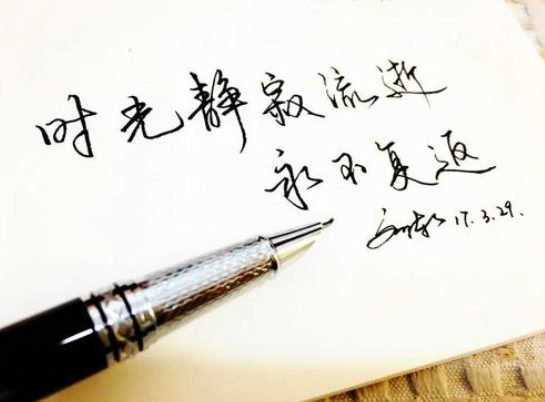 时光静寂流逝
永不复返
17.3.29.